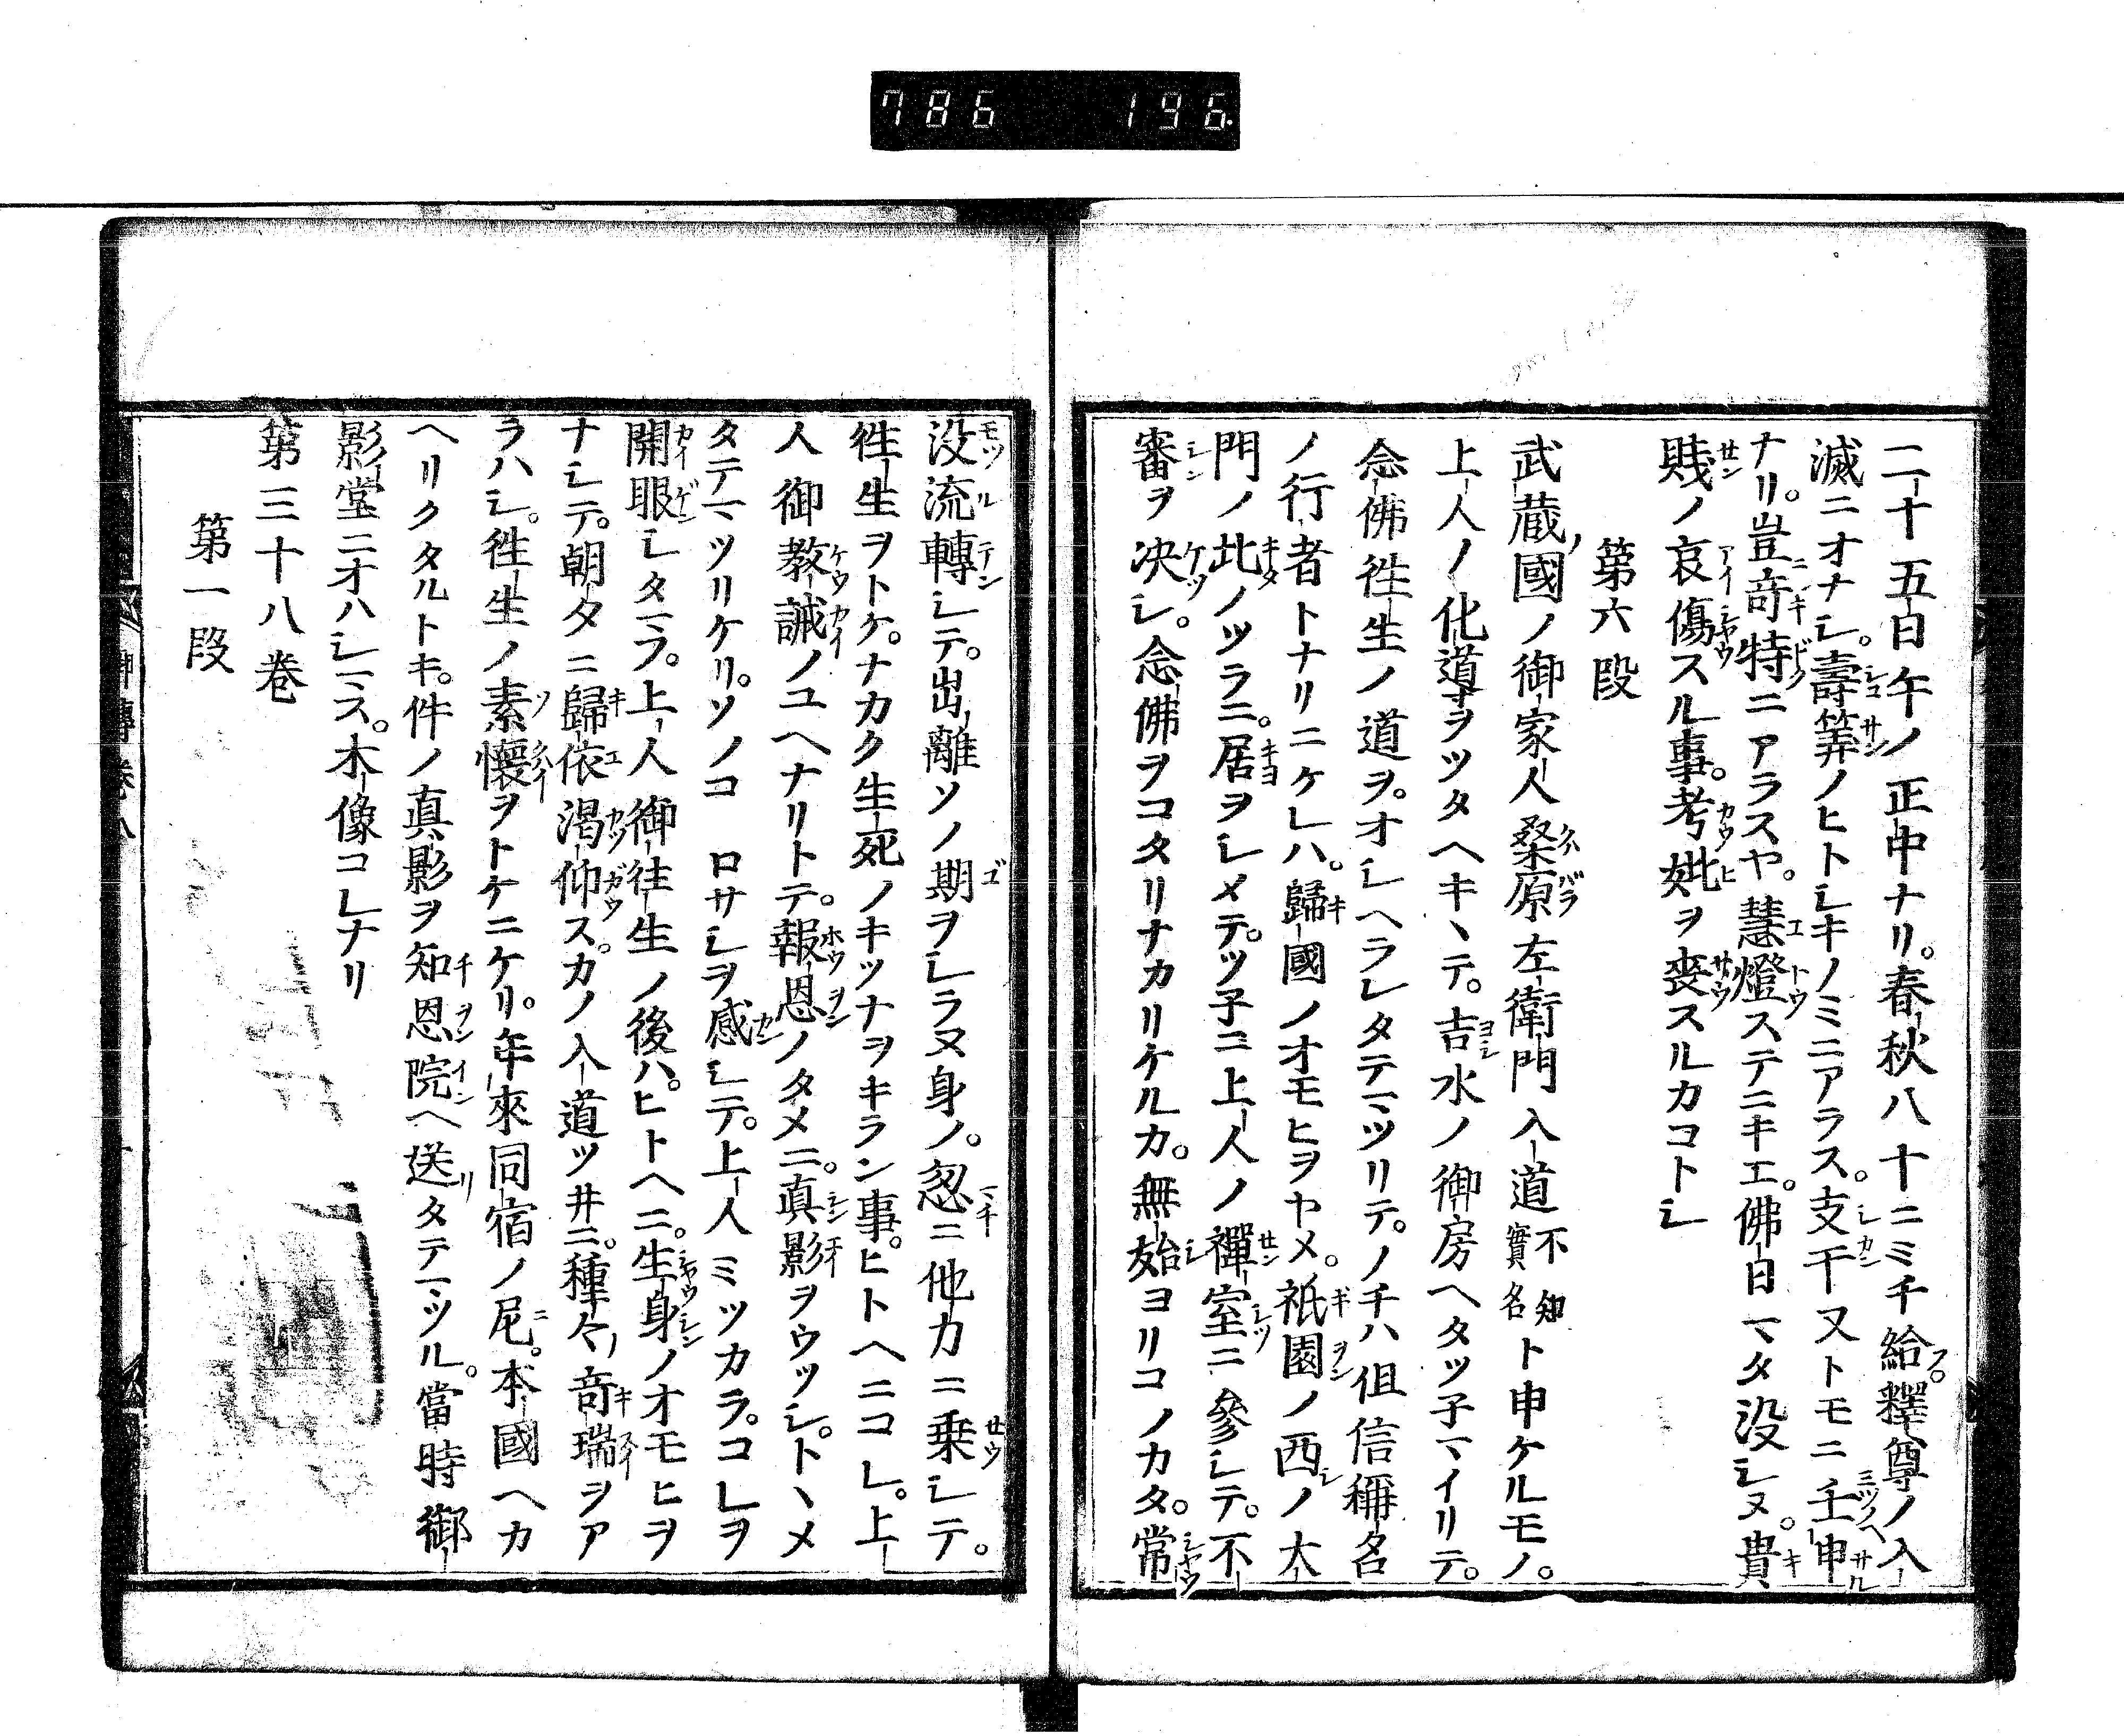 786 196
二十五日午ノ正中ナリ。春秋八十ニミチ給フ。釋尊ノ入
滅ニオナシ。壽筭ノヒトシキノミニアラス。支干又トモニ壬申
ナリ。豈奇特ニアラスヤ。慧燈ステニキエ。佛日マタ没シヌ。貴
賎ノ哀傷スル事。考妣ヲ喪スルカコトシ
第六段
武蔵ノ國ノ御家人桑原左衛門入道不知實名ト申ケルモノ。
上人ノ化道ヲツタヘキヽテ。吉水ノ御房ヘタツ子マイリテ。
念佛徃生ノ道ヲ。オシヘラレタテマツリテ。ノチハ但信稱名
ノ行者トナリニケレハ。歸國ノオモヒヲヤメ。祇園ノ西ノ大
門ノ北ノツラニ。居ヲシメテ。ツ子ニ上人ノ禪室ニ參シテ。不
審ヲ决シ。念佛ヲコタリナカリケルカ。無始ヨリコノカタ。常
没流轉シテ。出離ソノ期ヲシラヌ身ノ。忽ニ他力ニ乗シテ。
徃生ヲトケ。ナカク生死ノキツナヲキラン事。ヒトヘニコレ。上
人御教誡ノユヘナリトテ。報恩ノタメニ。真影ヲウツシ。トヽメ
タテマツリケリ。ソノコヽロサシヲ感シテ。上人ミツカラ。コレヲ
開眼シタマフ。上人御往生ノ後ハ。ヒトヘニ。生身ノオモヒヲ
ナシテ。朝夕ニ歸依渇仰ス。カノ入道ツ井ニ。種々ノ奇瑞ヲア
ラハシ。徃生ノ素懷ヲトケニケリ。年來同宿ノ尼。本國ヘカ
ヘリクタルトキ。件ノ真影ヲ知恩院ヘ送リタテマツル。當時御
影堂ニオハシマス。木像コレナリ
第三十八巻
第一段